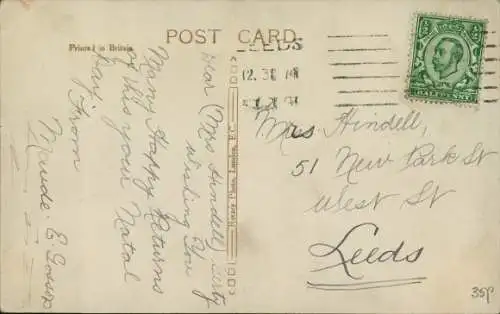 POST CARD
Printed in Britain
LEEDS
12.30 PM
HALFPENNY
Dear Mrs Hindell
Wishing You
Many Happy Returns
of this your Natal
Day.
From
Maude. E.
Mrs Hindell,
51 New Park St
West St
Leeds
London, E.C.
35p